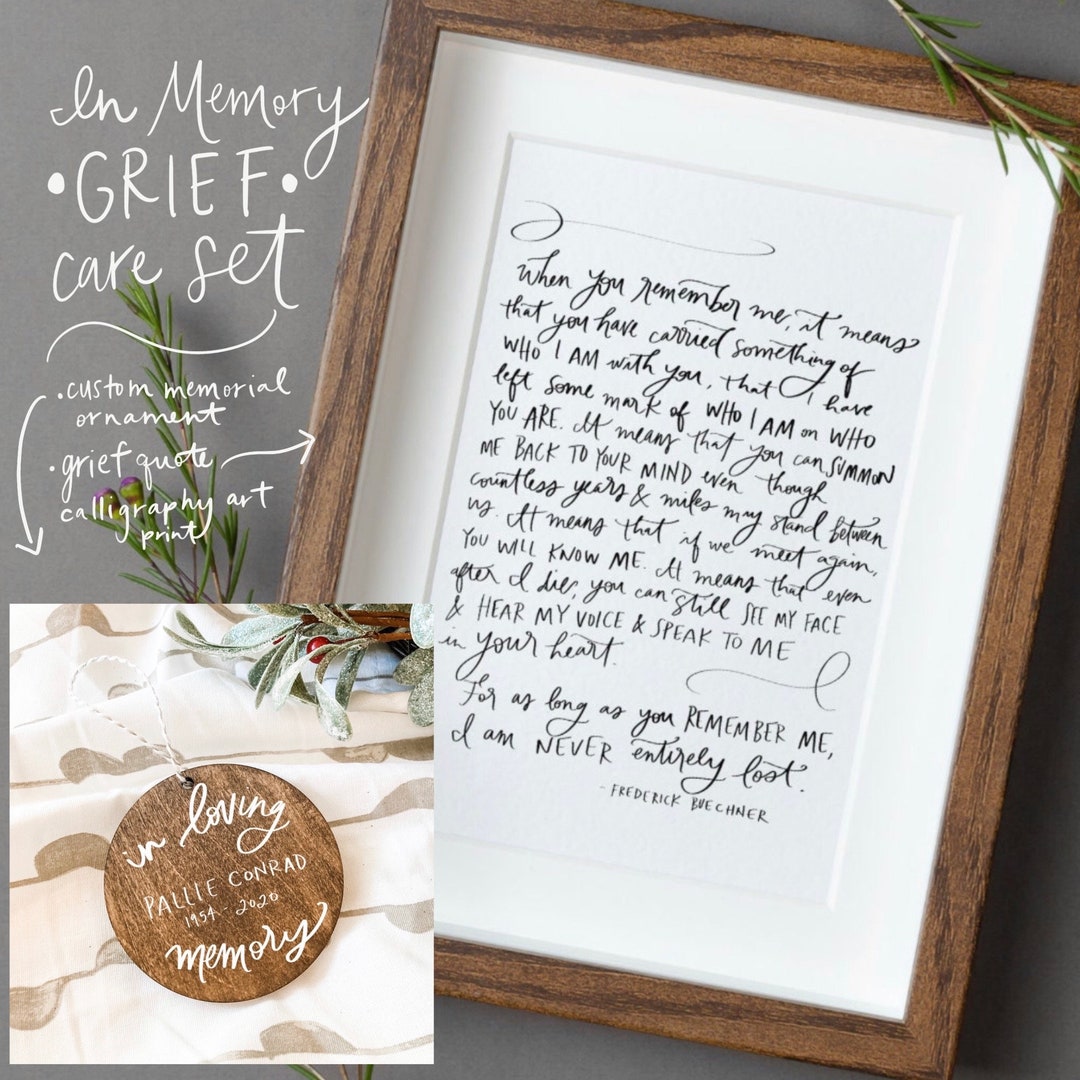 In Memory
•GRIEF•
care set
•custom memorial
ornament
•grief quote
calligraphy art
print
When you remember me, it means
that you have carried something of
WHO I AM with you, that I have
left some mark of WHO I AM on WHO
YOU ARE. It means that you can SUMMON
ME BACK TO YOUR MIND even though
countless years & miles may stand between
us. It means that if we meet again,
YOU WILL KNOW ME. It means that even
after I die, you can still SEE MY FACE
& HEAR MY VOICE & SPEAK TO ME
in your heart.
For as long as you REMEMBER ME,
I am NEVER entirely lost.
- FREDERICK BUECHNER
in loving
PALLIE CONRAD
1954 - 2020
memory